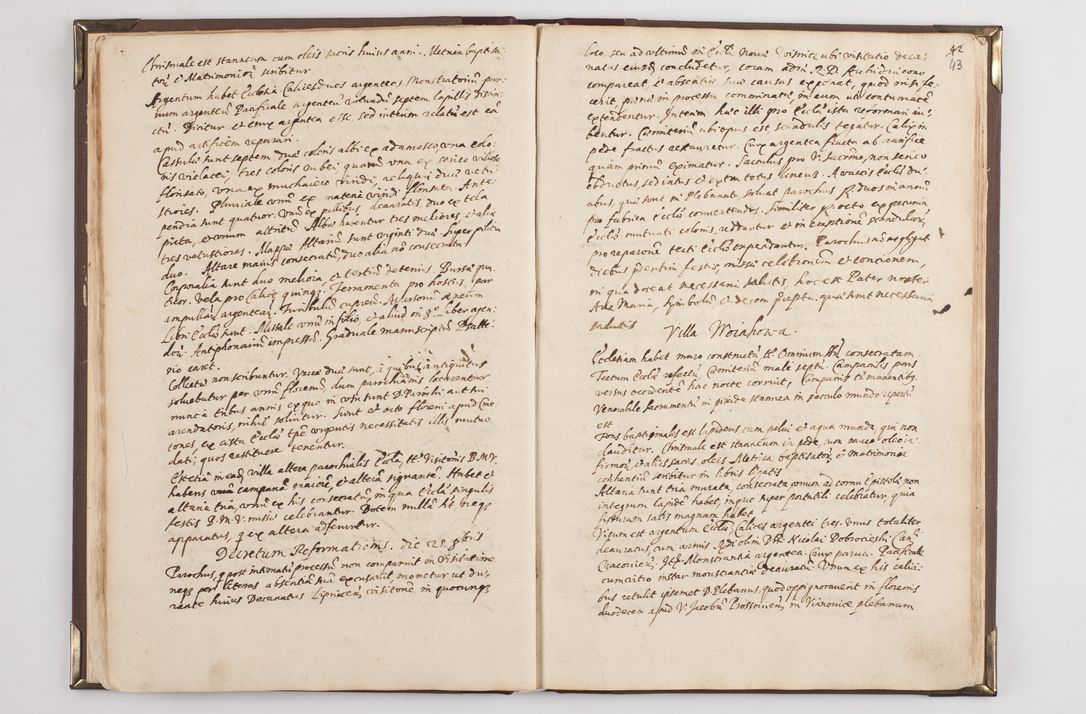 Chrismale est stanneum cum oleis sacris huius anni. Metrica baptisa
tor. et Matrimonior. scribitur.
Argentum habet Ecclesia Calices duos argenteos Monstratorium par
vum argenteum Pacificale argenteum rotundum septem lapillis distin
ctum. Dicitur et crux argentea esse, sed interim relatum est eam
apud aurificem reparari.
Casulae sunt septem duae coloris albi ex adamasco una colo
ris violacei, tres coloris rubei quarum una ex serico villoso
floridato, una ex muchaiero viridi, reliquae duae vetu
stiores. Pluviale unum ex viridi floridatum. Ante
pendia sunt quatuor. Unum ex pellibus deauratis, duo ex tela
picta, et unum attritum. Albae habentur tres meliores et aliae
tres vetustiores. Mappae Altarium sunt viginti duae. Superpellicia
duo. Altare maius consecratum, duo alia non consecrata
Corporalia sunt duo meliora, et tertium deterius. Bursae
Vela pro calice quinque. Ferramenta pro hostiis, par
ampullarum argentearum. Turibulum cupreum. Aspersorium aeneum
Libri Ecclesiae sunt. Missale unum in folio, et aliud in 4to. Liber agen
dorum. Antiphonarium impressum. Graduale manuscriptum. Psalte
rio caret.
Collecta non scribuntur. Vaccae duae sunt, e quibus antiquitus
solvebatur per unum florenum, dum parochianis locarentur
nunc a tribus annis ex quo in usu sunt D. Parochi aut sui
arendatoris, nihil solvitur. Sunt et octo floreni apud Cme
tones, ex cista Ecclesiae tempore urgentis necessitatis illis mutuo
dati, quos restituere tenentur.
Est etiam in eadem villa altera parochialis Ecclesia, tt. Visitationis B. M. V.
habens unam campanam maiorem, et alteram signante. Habet et
altaria tria, unum ex his consecratum, in qua Ecclesia singulis
festis B. M. V. missae celebrantur. Dotem nullam habet neque
apparatus, qui ex altera adferuntur.
Decretum Reformationis. die 25 9bris
Parochus, qui post intimatum processum non comparuit in visitatione
neque per literas absentiam sui excusavit, monetur ut du
rante huius Decanatus Lipnicen. visitatione in quocunque
42
43
loco, seu ad ultimum in Ecclesia Novae Visnicz ubi visitatio deca
natus eiusdem concludetur, coram adm. R. D. Archidiacono
compareat, et absentiae suae causas exponat, quod nisi fe
cerit, poenae in processu comminatae in eum ut contumacem
extendentur. Interim haec illi pro Ecclesia ista reformari iu
bentur. Cmiterium ubi opus est scandulis tegatur. Calix in
pede fractus restauretur. Crux argentea facta ab aurifice
quam primum eximatur. Sacculus pro V. Sacramento, non serico
obductus sed intus et extra totus lineus. A vaccis Ecclesiae du
abus, quae sunt in Plebania, solvat parochus fl. duos in annum
pro fabrica Ecclesiae convertendos. Similiter fl. octo ex pecunia
Ecclesiae mutuati colonis, reddantur et in emptionem scandularum
pro reparatione tecti Ecclesiae expendantur. Parochus non negligat
diebus praesertim festis, missae celebrationem et concionem,
in qua doceat necessaria salutis, hoc est Pater noster
Ave Maria, Symbolum et decem praecepta, quae sunt necessaria
salutis
Villa Woiakowa.
Ecclesiam habet muro constructam tt. Omnium SS. consecratam
Tectum Ecclesiae refectum, Cmiterium male septum. Campanilis pars
versus occidentem hac nocte corruit, Campanis tamen manentibus.
Venerabile Sacramentum in pixide stannea in sacculo mundo repertum
est
Fons baptismalis est lapideus cum pelvi et aqua munda, qui non
clauditur. Chrismale est stanneum in pede, non vacuo oleo in
firmorum, et aliis sacris oleis. Metrica baptisatorum, et matrimonia
contrahentium scribitur in libris ligatis
Altaria sunt tria murata, consecrata, unum a cornu Epistolae non
integrum lapidem habet, in quo super portatili celebratur, quia
scissuram satis magnam habet.
Visum est argentum Ecclesiae, Calices argentei tres. Unus totaliter
deauratus, cum armis Dni Nicolai Dobrocieski Can.
Cracovien. Item Monstrantia argentea. Crux parva. Pacificale
cum vitro instar monstrantiae deauratum. Unum ex his calici
bus retulit ipsemet D. Plebanus, quod oppignoraverit in florenis
duodecim apud V. Jacobum Prossovien. in Viarovice plebanum